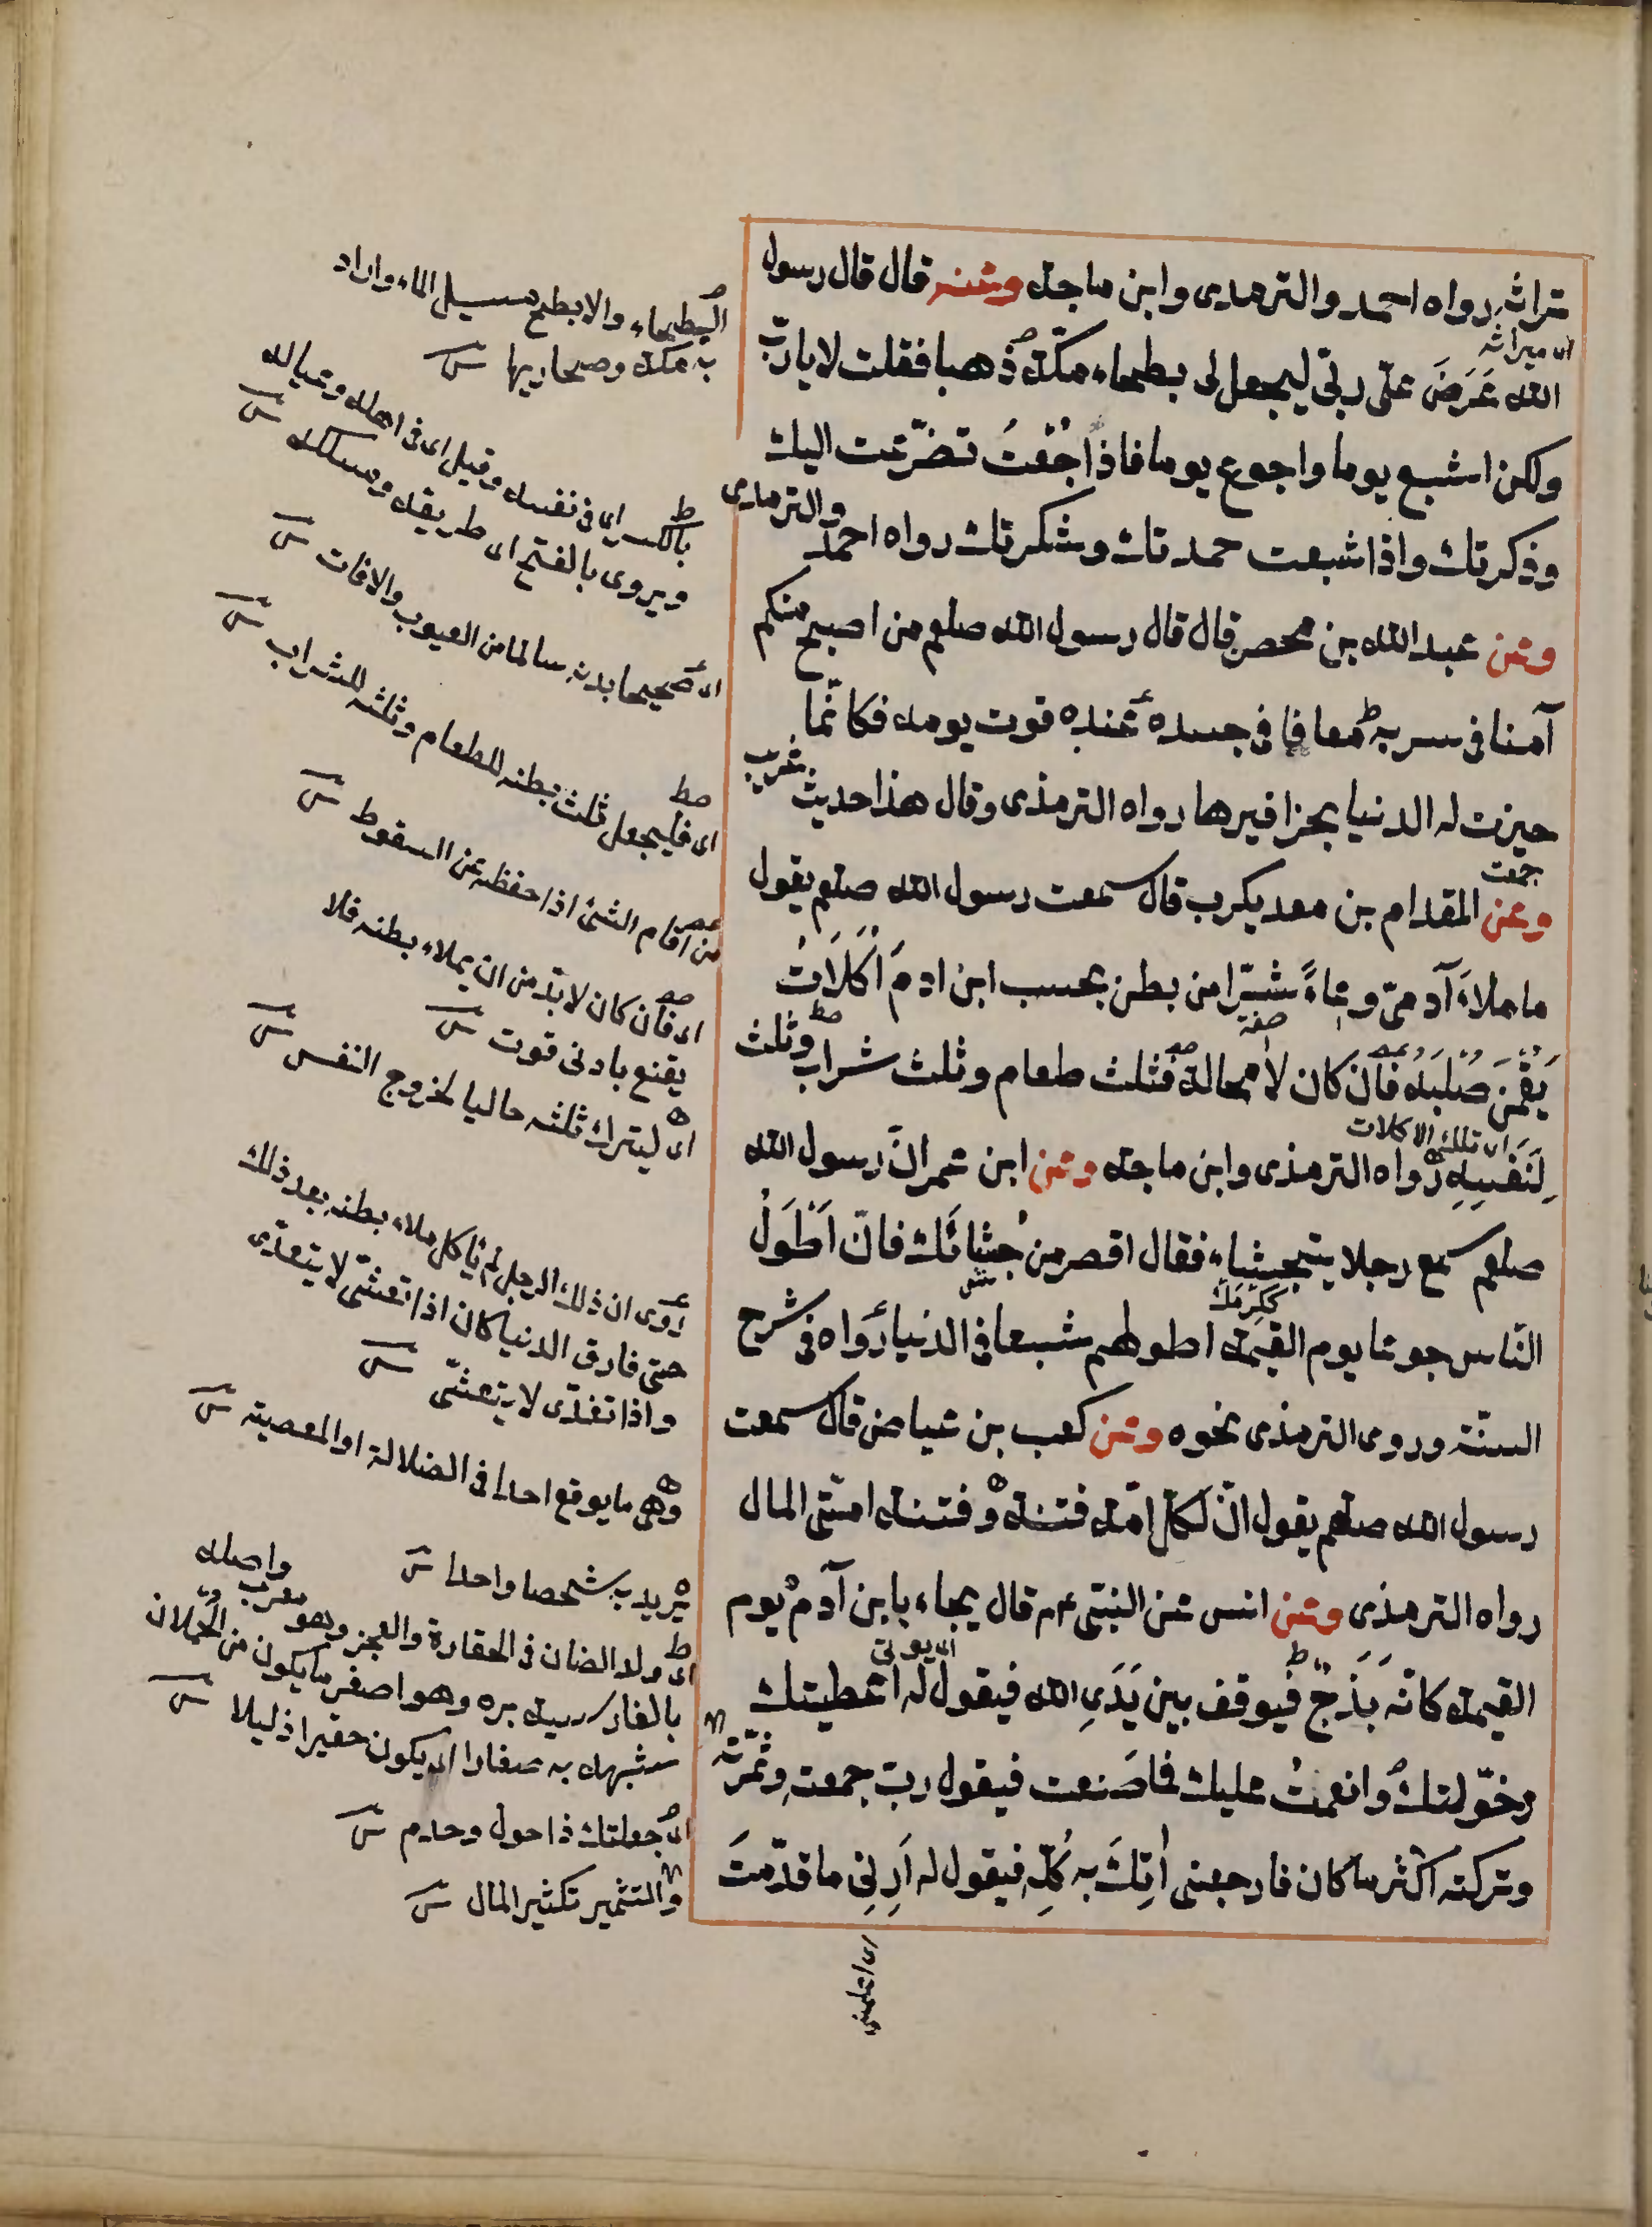 تراثه رواه احمد والترمذى وابن ماجة وعنه قال قال رسول
اى ميراثه
الله عَرَضَ علىّ ربّى ليجعل لى بطحاء مكة ذهبا فقلت لا يا ربّ
ولكن اشبع يوما واجوع يوما فاذا جُعْتُ تضرّعت اليك
وذكرتك واذا شبعت حمدتك وشكرتك رواه احمد والترمذى
وعن عبد الله بن محصن قال قال رسول الله صلعم من اصبح منكم
آمنا فى سربه معافا فى جسده عنده قوت يومه فكانّما
حيزت له الدنيا بحزافيرها رواه الترمذى وقال هذا حديث غريب
جمعت
وعن المقدام بن معديكرب قال سمعت رسول الله صلعم يقول
ما ملاءَ آدمىّ وعاءً شرّا من بطن بحسب ابن ادمَ اُكُلَاتٌ
صفة
يُقِمْنَ صُلْبَهُ فان كان لا محالة فثلث طعام وثلث شراب وثلث
اى تلك الاكلات
لِنَفَسِهِ رواه الترمذى وابن ماجة وعن ابن عمر انّ رسول الله
صلعم سمع رجلا يتجشاء فقال اقصر من جُشائك فانّ اَطْوَلَ
النّاس جوعا يوم القيمة اطولهم شبعا فى الدنيا رواه فى شرح
السنّة وروى الترمذى نحوه وعن كعب بن عياض قال سمعت
رسول الله صلعم يقول انّ لكلّ اِمّة فتنة وفتنة امّتى المال
رواه الترمذى وعن انس عن النبىّ عم قال يجاء بابن آدم يوم
اى يوتى
القيمة كانّه بَذَجٌ فيوقف بين يَدَىِ الله فيقول له اعطيتك
وخوّلتك وانعمتُ عليك فما صَنعت فيقول ربّ جمعته وثمّرته
وتركته اكثر ما كان فارجعنى اٰتِكَ به كُلِّه فيقول له اَرِنِى ما قدّمتَ
اى اعلمنى
البطحاء والابطح مسيل الماء واراد
به مكة وصحاريها
بالكسر اى فى نفسه وقيل اى فى اهله وعياله
ويروى بالفتح اى طريقه ومسلكه
اى صحيحا بدنه سالما من العيوب والافات
اى فليجعل ثلث بطنه للطعام وثلثه للشراب
من اقام الشئ اذا حفظه عن السقوط
اى فان كان لا بدّ من ان يملاء بطنه فلا
يقنع بادنى قوت
اى ليترك ثلثه خاليا لخروج النفس
روى ان ذلك الرجل لم ياكل ملاء بطنه بعد ذلك
حتى فارق الدنيا كان اذا تعشّى لا يتغدّى
واذا تغدّى لا يتعشّى
وهى ما يوقع احدا فى الضلالة او المعصية
يريد به شخصا واحدا
اى ولد الضان فى الحقارة والعجز وهو معرب واصله
بالفارسية بره وهو اصغر ما يكون من الحملان
شبهه به صغارا اى يكون حقيرا ذليلا
اى جعلتك ذا حول وخدم
والتثمير تكثير المال